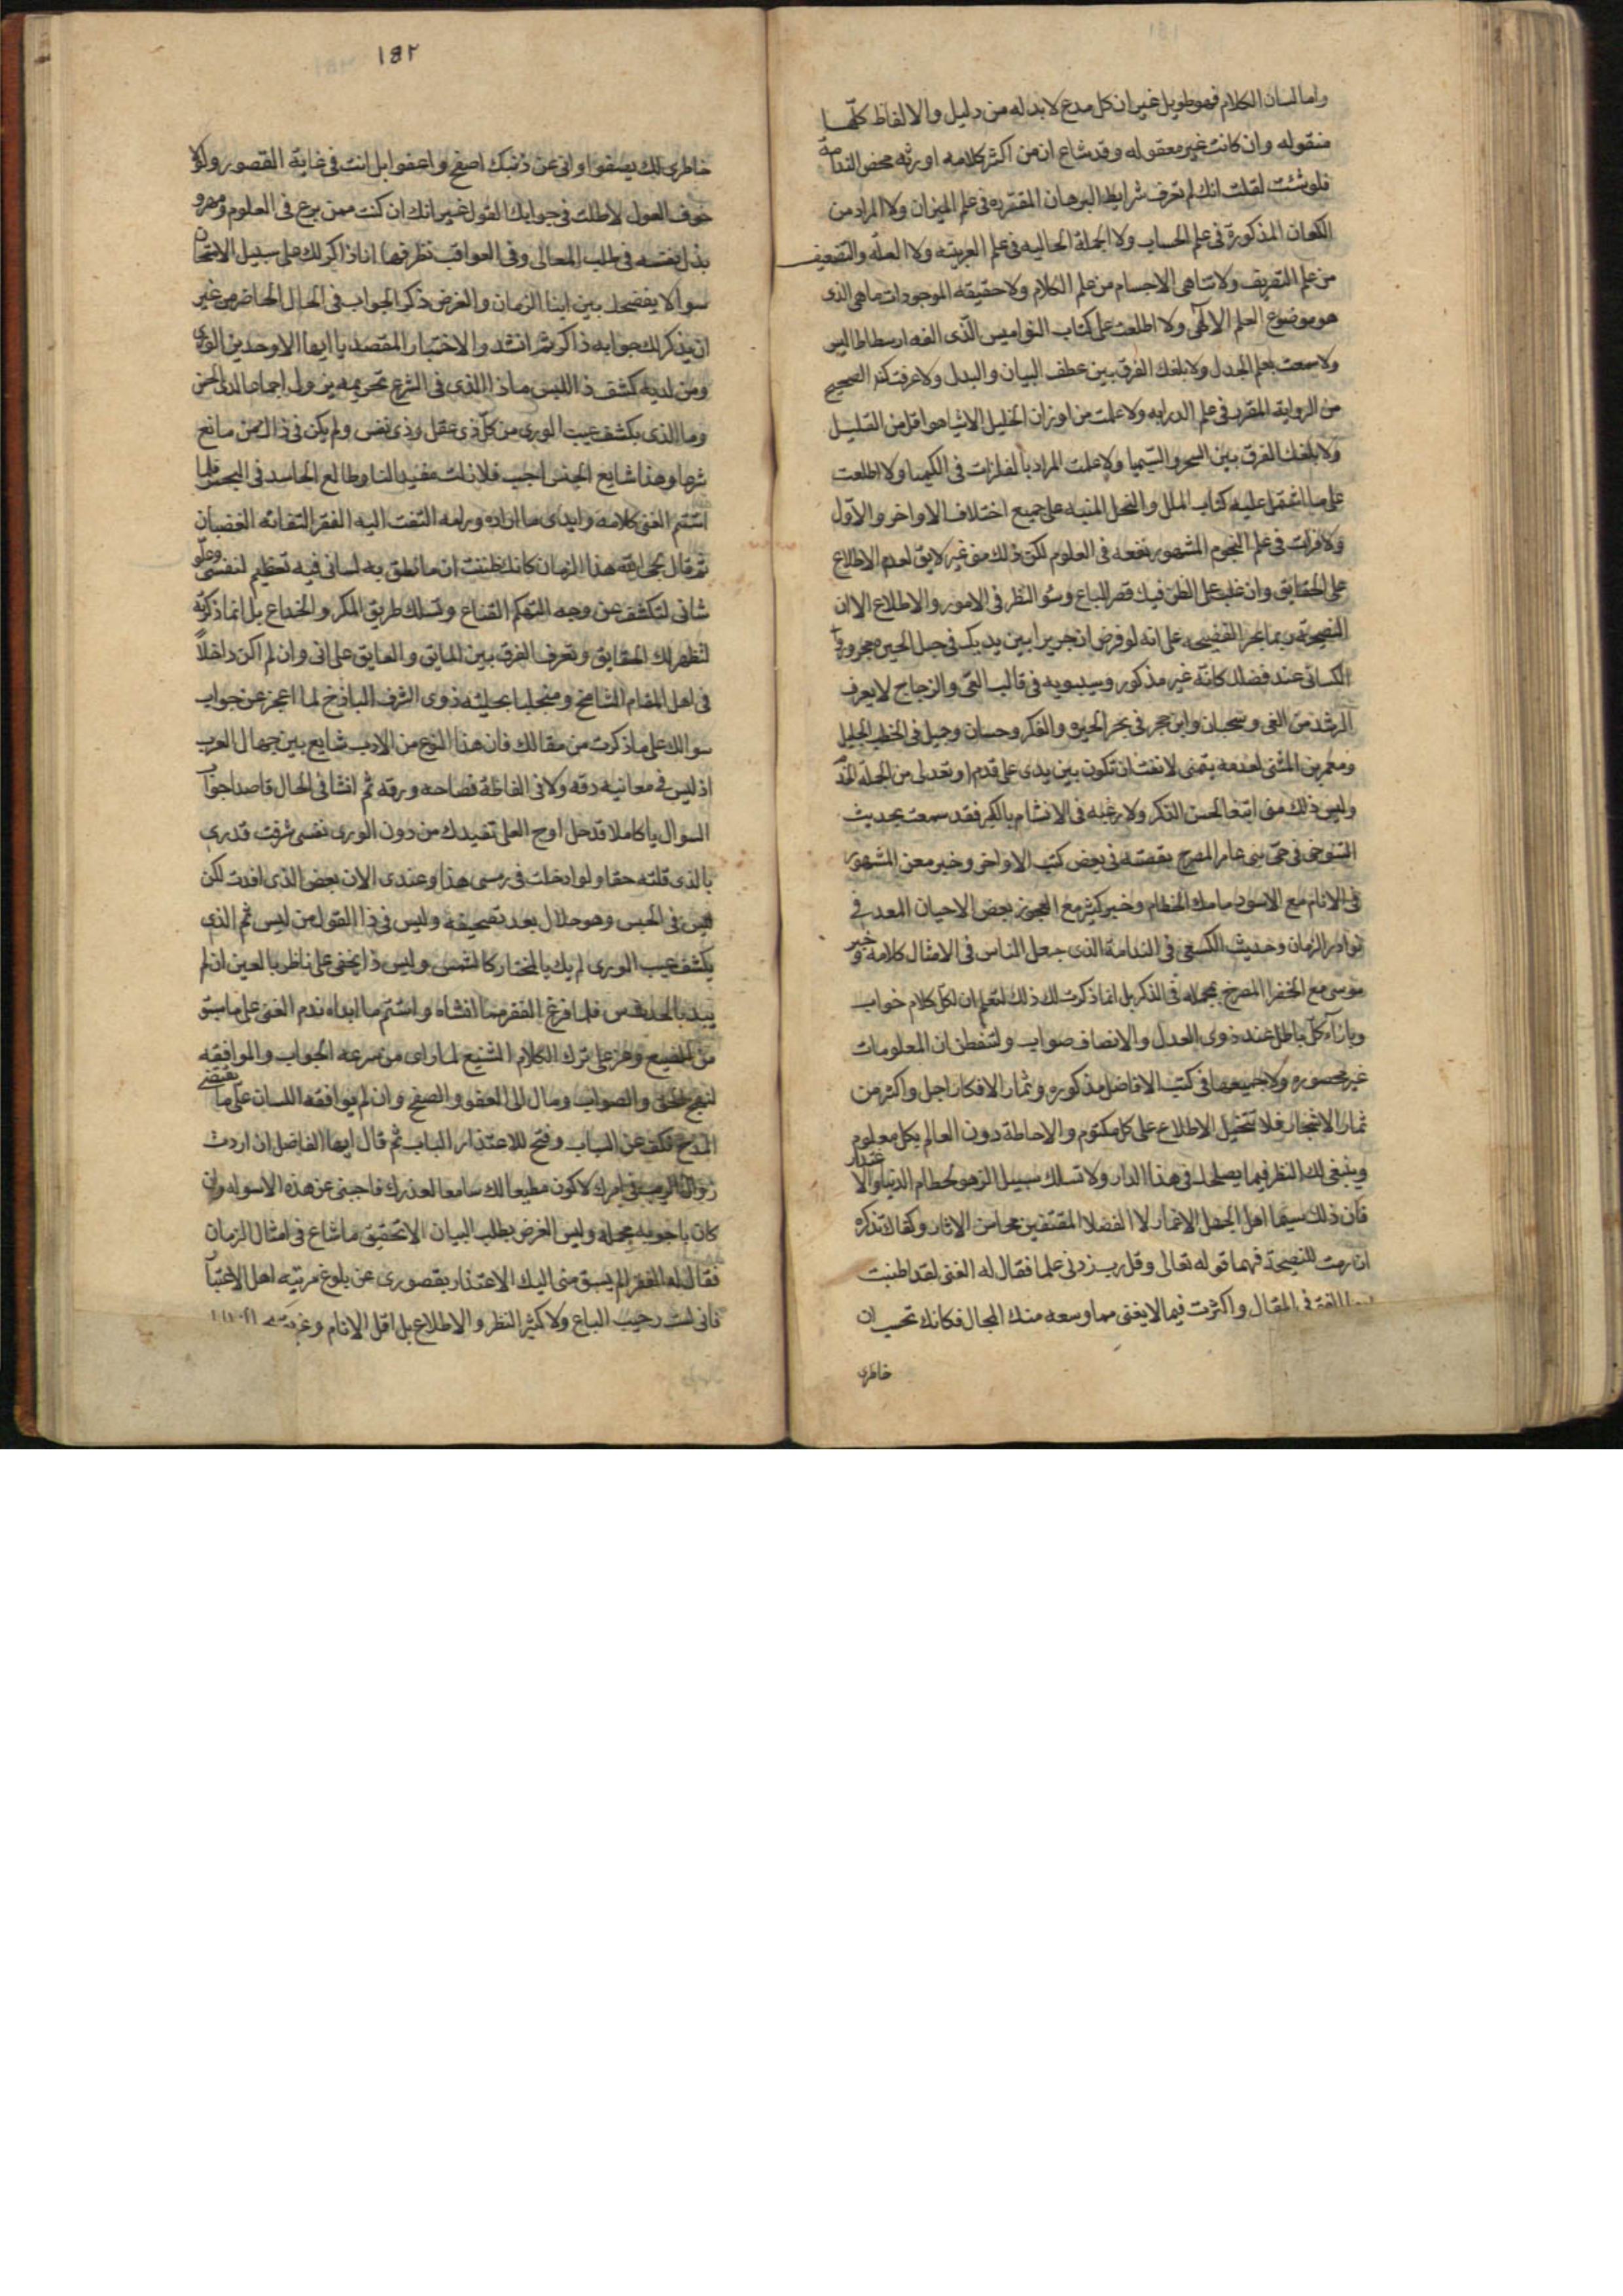 واما لسان الكلام فهو طويل غير ان كل مدع لا بد له من دليل والالفاظ كلّها
منقوله وان كانت غير معقوله وقد شاع ان من اكثر كلامه اورثه محض الندامة
فلو شئت لقلت انك لم تعرف شرايط البرهان المقرره فى علم الميزان ولا المراد من
الكعاب المذكورة فى علم الحساب ولا الجملة الحاليه فى علم العربيّه ولا العلّه والتضعيف
من علم التصريف ولا تناهى الاجسام من علم الكلام ولا حقيقه الموجودات ماهى الذى
هو موضوع العلم الالٓهى ولا اطلعت على كتاب النواميس الّذى الفه ارسطاطاليس
ولا سمعت بعلم الجدل ولا بلغك الفرق بين عطف البيان والبدل ولا عرفت كنه الصحيح
من الرواية المقرر فى علم الدرايه ولا علمت من اوزان الخليل الا شيا هو اقل من القليل
ولا بلغك الفرق بين السحر والسّيميا ولا علمت المراد بالفلزات فى الكيميا ولا اطلعت
على ما اشتمل عليه كتاب الملل والنحل المنبه على جميع اختلاف الاواخر والاوّل
ولا قرات فى علم النجوم المشهور نفعه فى العلوم لكن ذلك منى غير لايق لعدم الاطلاع
على الحقايق وان غلب على الظن فيك قصر الباع وسُو النظر فى الامور والاطلاع الا ان
النصيحة ربما تجر الفضيحه على انه لو فرض ان جريرا بين يديك فى حبل الحيره مجرور وا
الكسائى عند فضلك كانّه غير مذكور وسيبويه فى قالب العىّ والزجاج لا يعرف
الرشد من الغى وسحبان وابن حجر فى بحر الحيره والفكر وحسان وجميل فى الخطب الجليل
ومعمر بن المثنى لعدمه يتمنى لانفت ان تكون بين يدى على قدم او تعد لى من الجملة الخدم
وليس ذلك منى ابتغا لحسن الذكر ولا رغبه فى الاتسام بالكبر فقد سمعت بحديث
التنوخى فى حىّ بنى عامر المصرح بقصته فى بعض كتب الاواخر وخبر معن المشهور
فى الانام مع الاسود مامك الخطام وخبر كثير مع العجوز بعض الاحيان المعد فى
نوادر الزمان وحديث الكسعى فى الندامة الذى جعل الناس فى الامثال كلامه وخبر
موسى مع الخضر المصرح بمجمله فى الذكر بل انما ذكرت لك ذلك لتعلم ان لكل كلام جواب
وبازآء كلّ باطل عند ذوى العدل والانصاف صواب ولتفطن ان المعلومات
غير محصوره ولا جميعها فى كتب الافاضل مذكوره وثمار الافكار اجل واكثر من
ثمار الاشجار فلا تتخيل الاطلاع على كل مكتوم والاحاطة دون العالم بكل معلوم
وينبغى لك النظر فيما يصلحك فى هذا الدار ولا تسلك سبيل الزهو بحطام الدنيا والاغترار
فان ذلك سيما اهل الجهل الاغمار لا الفضلا المقتفين محاسن الاثار وكفاك تذكره
ان رمت للنصيحة فهما قوله تعالى وقل رب زدنى علما فقال له الغنى لقد اطنبت
ايها الفقير فى المقال واكثرت فيما لا يغنى مما وسعه منك المجال فكانك تحسب ان
خاطرى
١٨٢
خاطرى لك يصفوا وانى عن ذنبك اصفح واعفوا بل انت فى غاية القصور ولولا
خوف العول لاطلت فى جوابك القول غير انك ان كنت ممن برع فى العلوم ومهر و
بذل نفسه فى طلب المعالى وفى العواقب نظر فها انا ذاكر لك على سبيل الامتحان
سوالا يفضحك بين ابنا الزمان والغرض ذكر الجواب فى الحال الحاضر من غير
ان يذكر لك جوابه ذاكر ثم انشد والاختبار المقصد يا ايها الاوحد بين الورى
ومن لديه كشف ذا اللبس ماذا الذى فى الشرع تحريمه يزول اجماعا لدى الحبس
وما الذى يكشف عيب الورى من كلّ ذى عقل وذى نفس ولم يكن فى ذاك من مانع
شرعا وهذا شايع الجنس اجب فلا زلت مفيدا لنا وطالع الحاسد فى النحس فلما
استتم الغنى كلامه وابدى ما اراده ورامه التفت اليه الفقير التفاته الغضبان
ثم قال يا عجبا لاهل هذا الزمان كانك ظننت ان ما نطق به لسانى فيه تعظيم لنفسى وعلو
شانى لتكشف عن وجه التهكم القناع وتسلك طريق المكر والخداع بل انما ذكرته
لتظهر لك الحقايق وتعرف الفرق بين السابق والعايق على انى وان لم اكن داخلاً
فى اهل المقام الشامخ ومتجليا بحلية ذوى الشرف الباذخ لما اعجز عن جواب
سوالك على ما ذكرت من مقالك فان هذا النوع من الادب شايع بين جهال العرب
اذ ليس فى معانيه دقه ولا فى الفاظه فصاحه ورقه ثم انشا فى الحال قاصدا جواب
السوال يا كاملا قد حل اوج العلى تفيدك من دون الورى نفسى شرفت قدرى
بالذى قلته حقا ولو ادخلت فى رمسى هذا وعندى الان بعض الذى افدت لكن
ليس فى الحبس وهو حلال بعد تصحيفه وليس فى ذا القول من لبس ثم الذى
يكشف عيب الورى لم يك بالمختار كالشمس وليس ذا يخفى على ناظر بالعين ان لم
يبد بالحدس فلما فرغ الفقير مما انشاه واستتم ما ابداه ندم الغنى على ما سبق
من الصنيع وعزم على ترك الكلام الشنيع لما راى من سرعه الجواب والموافقه
لنهج الحق والصواب ومال الى العفو والصفح وان لم يوافقه اللسان على ما يقتضى
المدح فكف عن السباب وفتح للاعتذار الباب ثم قال ايها الفاضل ان اردت
زوال الريب فى امرك لاكون مطيعا لك سامعا لعذرك فاجبنى عن هذه الاسوله وان
كان باجوبه مجمله وليس الغرض بطلب البيان الا تحقيق ما شاع فى امثال الزمان
فقال له الفقير الم يسبق منى اليك الاعتذار بقصورى عن بلوغ مرتبه اهل الاعتبار
فانى لست رحيب الباع ولا كثير النظر والاطلاع بل اقل الانام